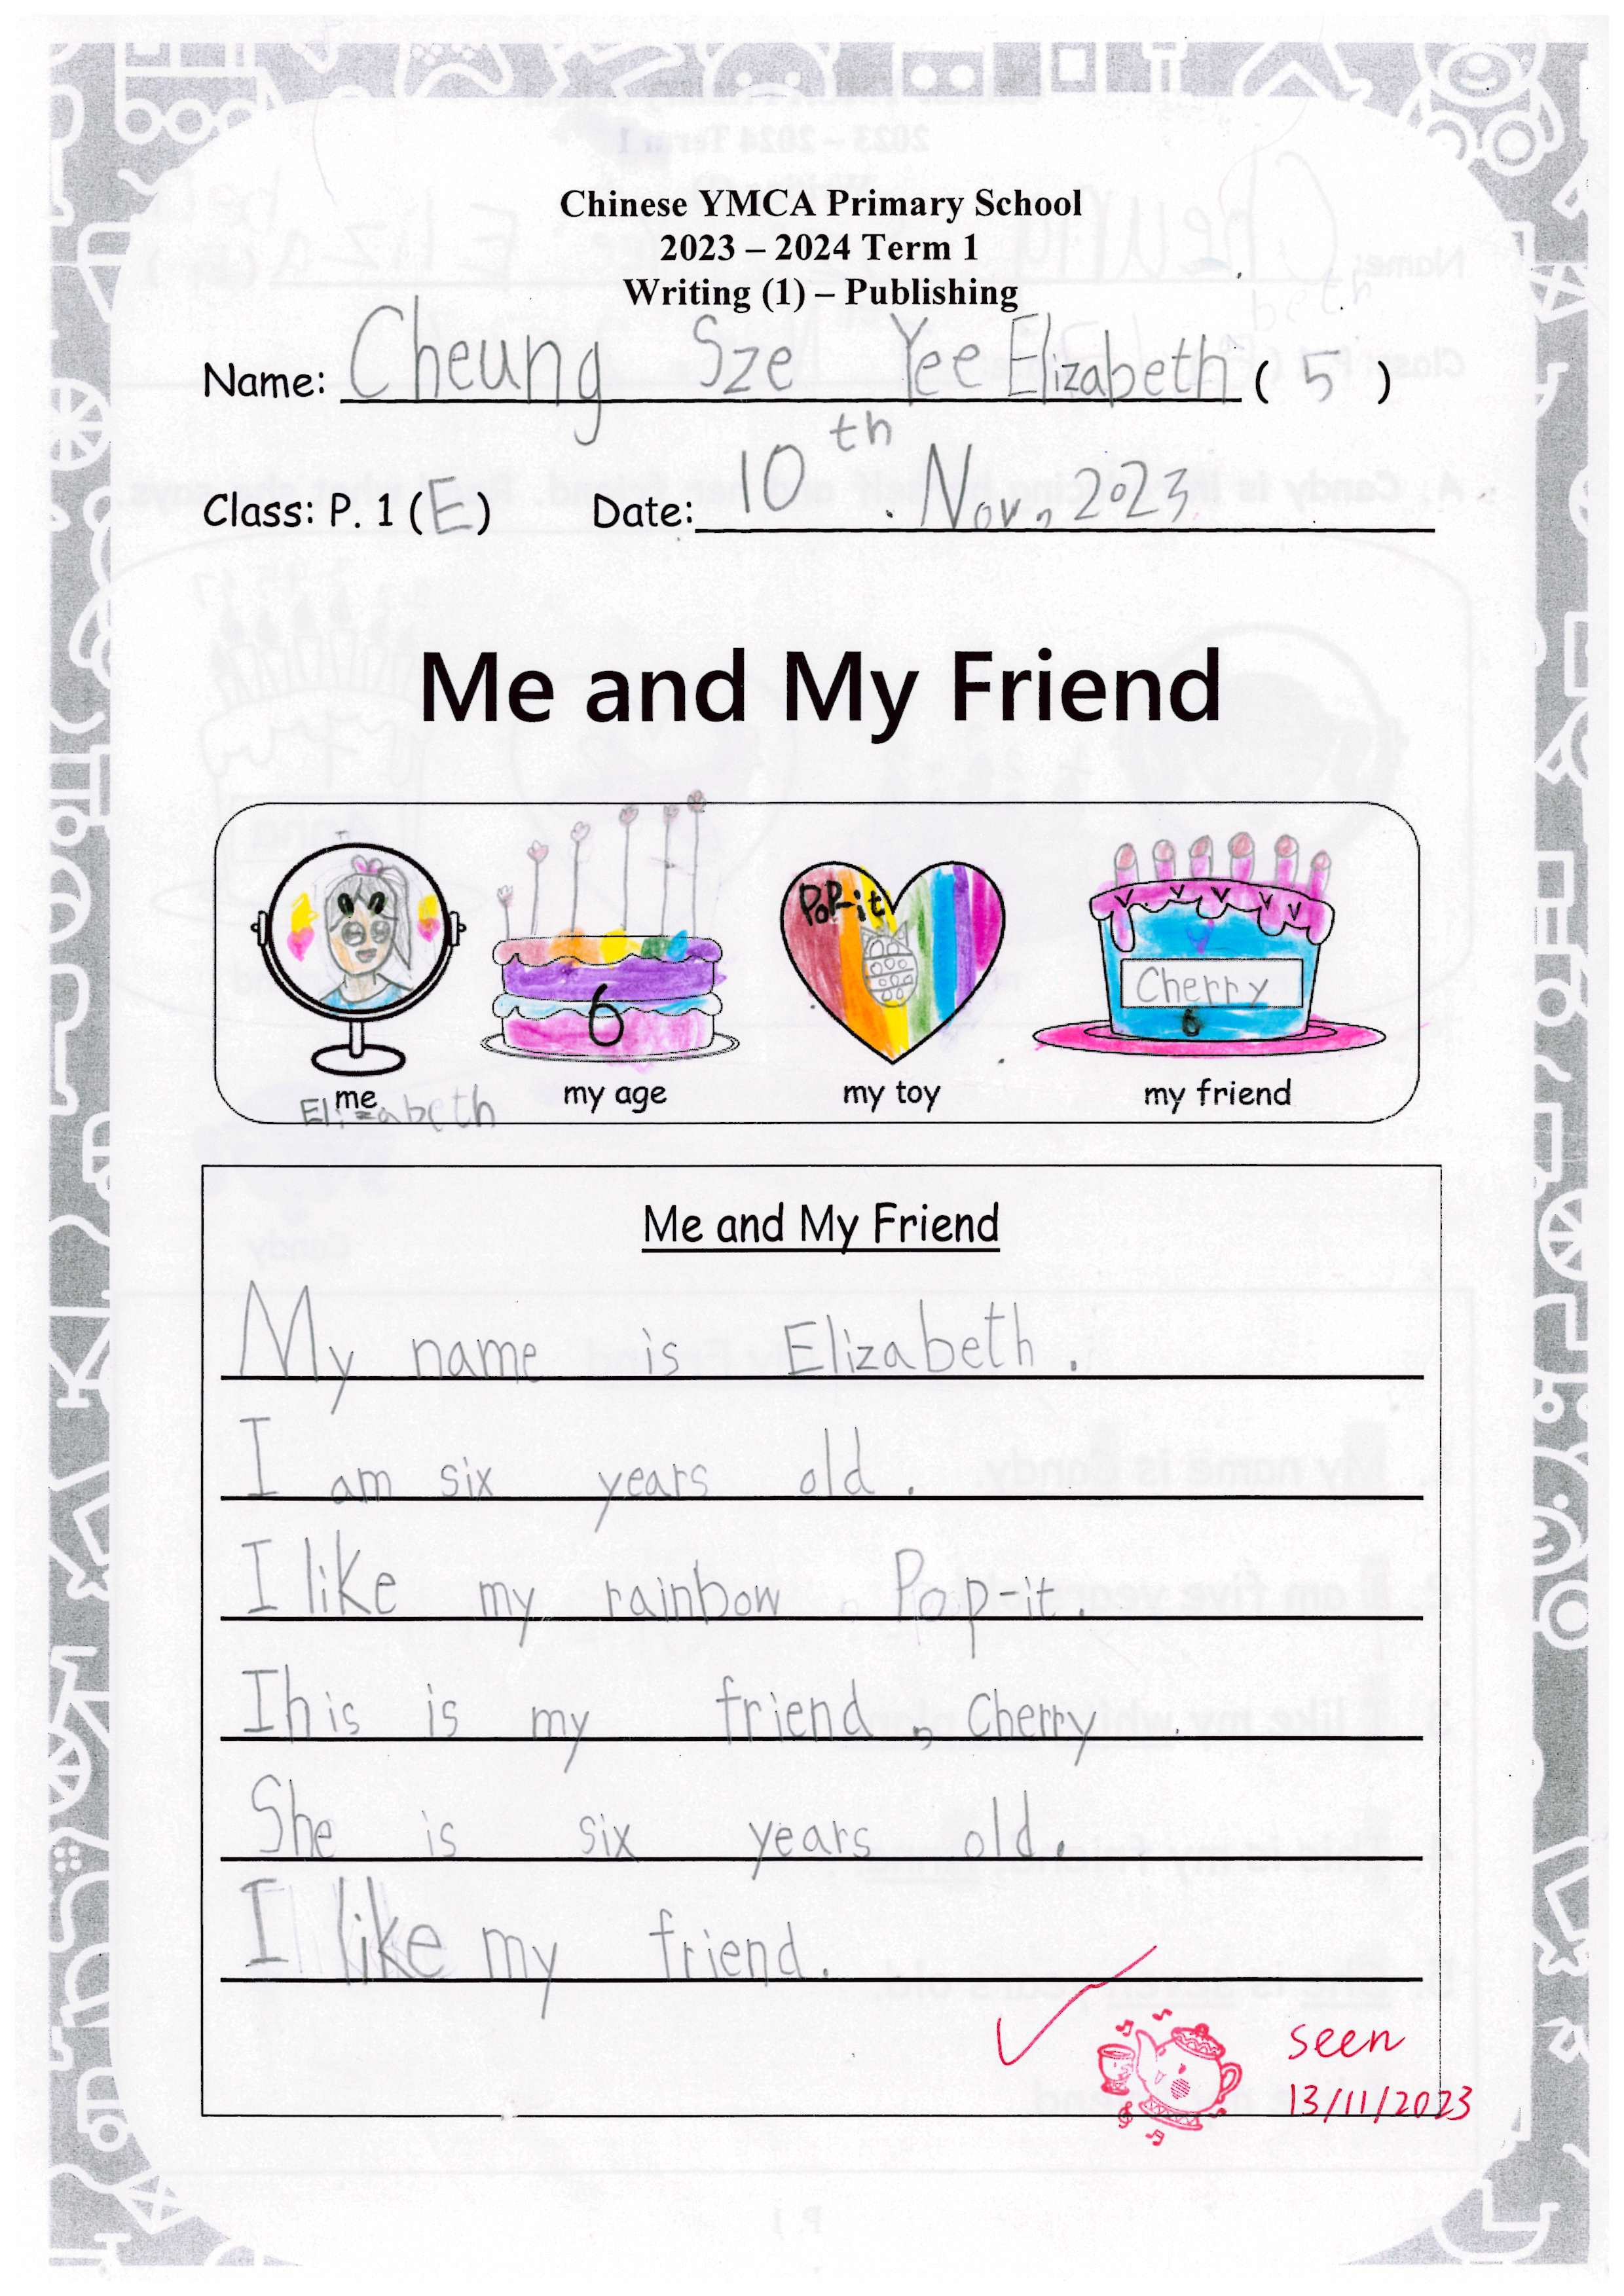 Chinese YMCA Primary School
2023 – 2024 Term 1
Writing (1) – Publishing
Name: Cheung Sze Yee Elizabeth ( 5 )
Class: P. 1 (E) Date: 10th. Nov, 2023
Me and My Friend
POP-it
6
Cherry
6
me my age my toy my friend
Elizabeth
Me and My Friend
My name is Elizabeth.
I am six years old.
I like my rainbow Pop-it.
This is my friend, Cherry.
She is six years old.
I like my friend.
seen
13/11/2023